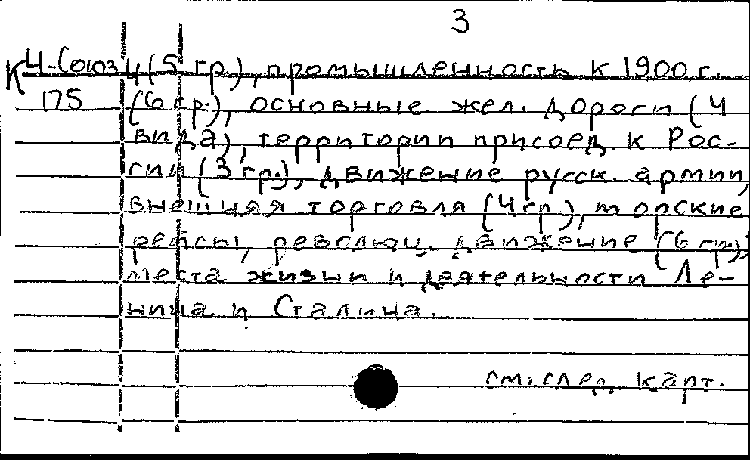 3
К Ц-Союз 4 (5 гр), промышленность к 1900 г.
175 (6 гр.), основные жел. дороги (4
вида), территории присоед. к Рос-
сии (3 гр.), движение русск. армии,
внешняя торговля (4 гр), морские
рейсы, революц. движение (6 гр),
места жизни и деятельности Ле-
нина и Сталина.
см. след. карт.